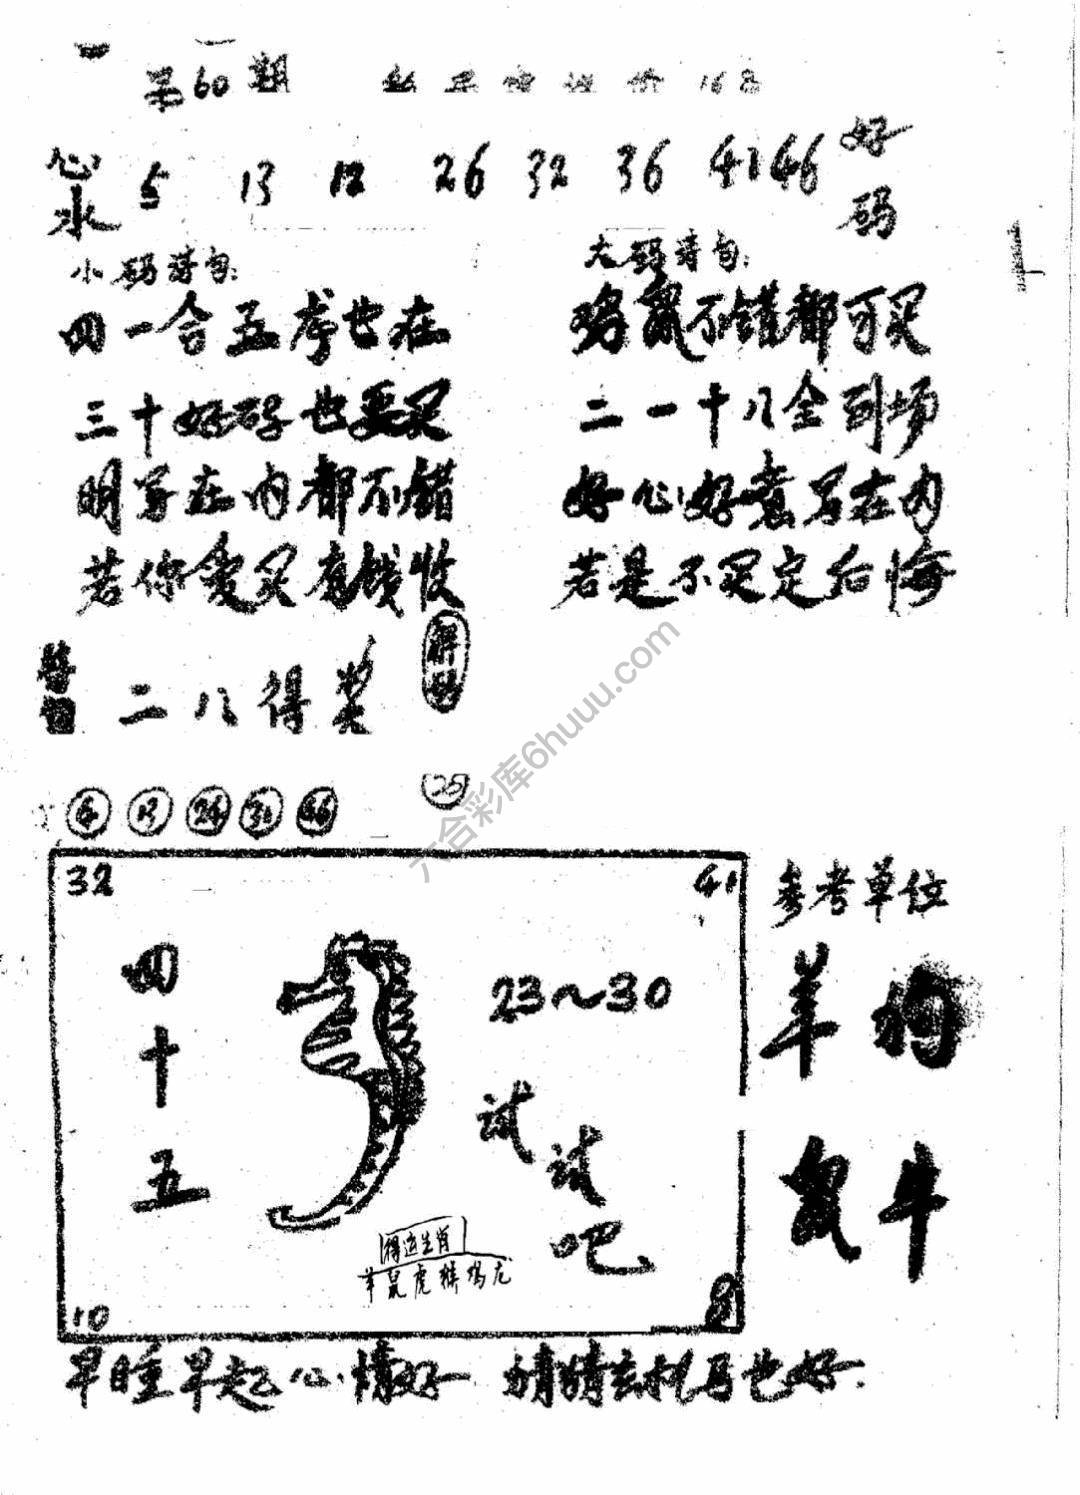 第60期
心水 5 13 12 26 32 36 41 46 好码
小码诗句:
四一合五考也在
三十好码也要买
明写在内都不错
若你爱买有钱收
大码诗句:
鸡鼠不错都可买
二一十八全到场
好心好意写在内
若是不买定后悔
二八得奖
六合彩库6huuu.com
32
41
四十五
23～30
试试吧
得运生肖
羊鼠虎猴鸡龙
10
8
参考单位
羊 狗
鼠 牛
早睡早起心情好